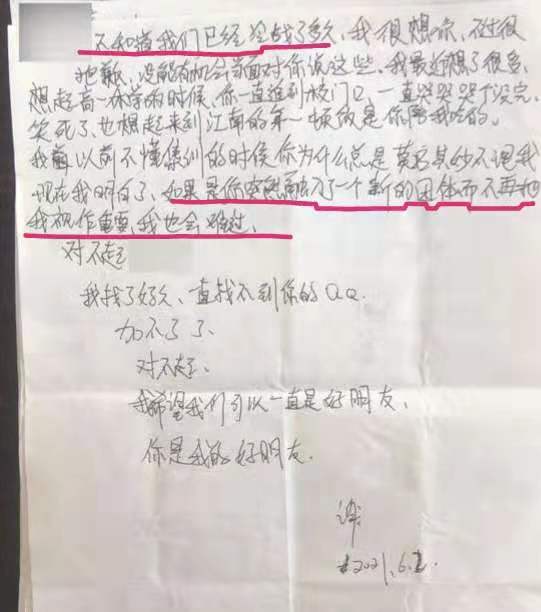 不知道我们已经冷战了多久,我很想你,不过很
抱歉,没能有机会当面对你说这些.我最近想了很多,
想起高一休学的时候,你一直追到校门口,一直哭哭哭个没完,
笑死了,也想起来到江南的第一顿饭是你陪我吃的。
我以前不懂集训的时候你为什么总是莫名其妙不理我
现在我明白了,如果是你突然融入了一个新的团体而不再把
我视作重要,我也会难过.
对不起
我找了好久、一直找不到你的QQ.
加不了了、
对不起、
我希望我们可以一直是好朋友、
你是我的好朋友.
2021.6.2